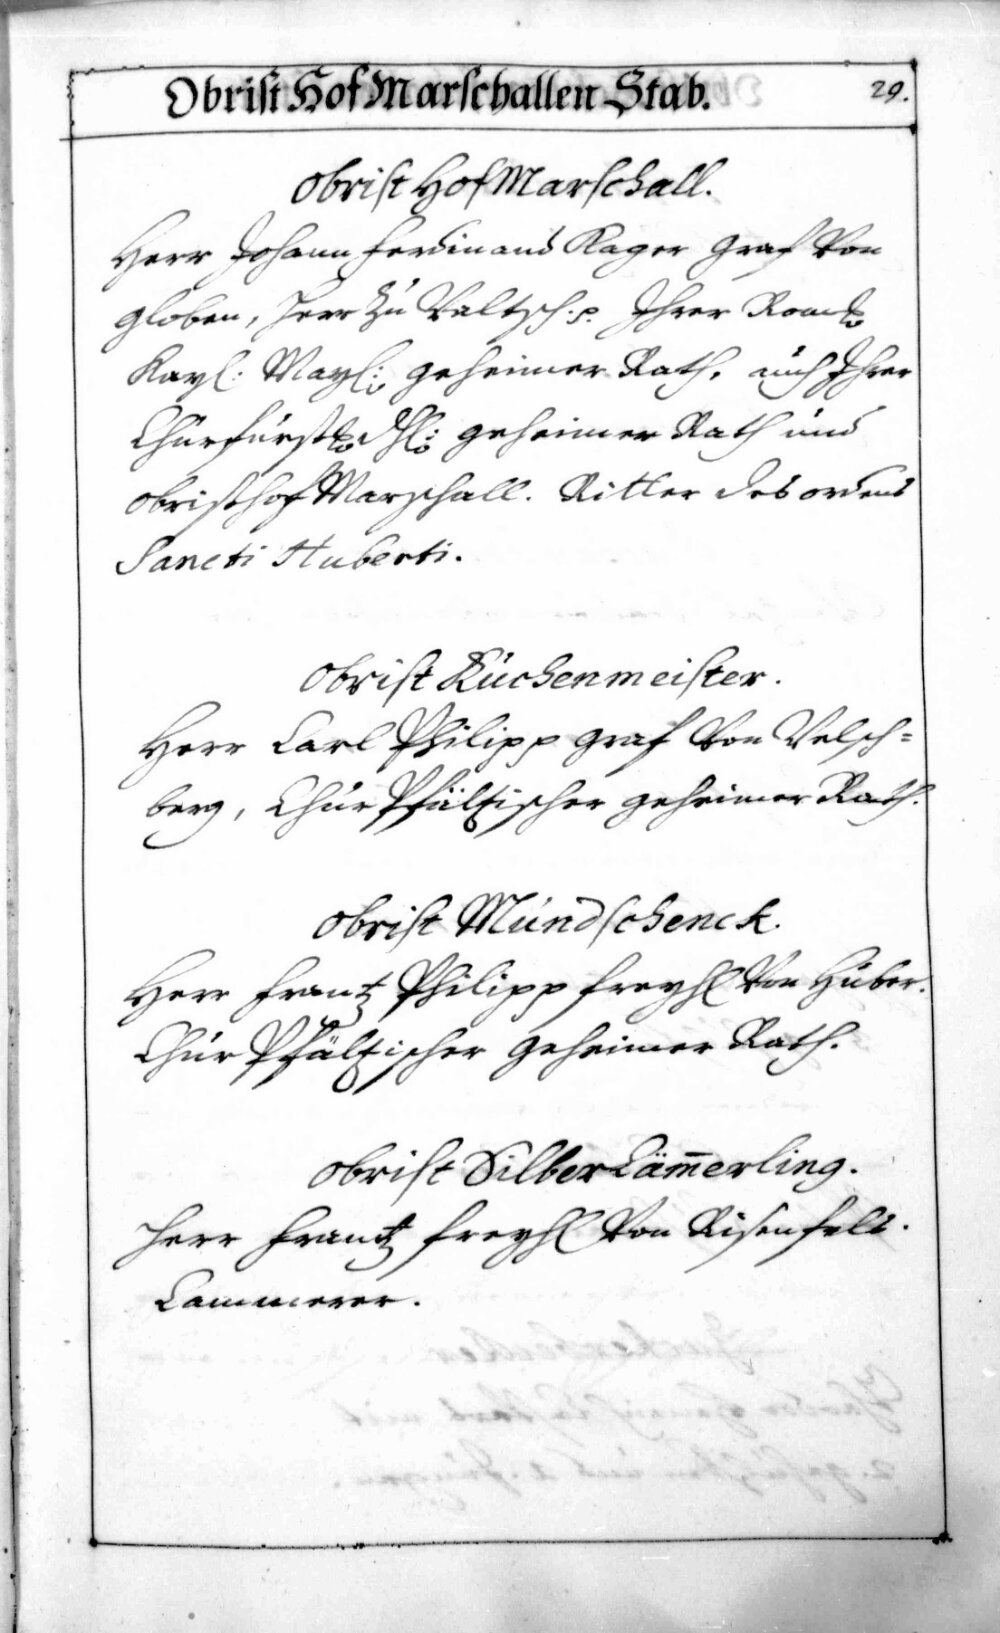 Obrist Hof Marschallen Stab. 29.
Obrist Hof Marschall.
Herr Johann Ferdinand Kager Graf Von
Globen, Herr zu Valtsch. p. Ihrer Röm:
Kayl: Mayl: geheimer Rath, auch Ihrer
Churfürstl: Dhl: geheimer Rath und
Obristhof Marschall. Ritter des ordens
Sancti Huberti.
Obrist Küchenmeister.
Herr Carl Philipp Graf Von Velsch=
berg, ChurPfältzischer geheimer Rath.
Obrist Mundschenck.
Herr Frantz Philipp freyh Von Huber.
ChurPfältzischer geheimer Rath.
Obrist SilberCäm̅erling.
Herr Frantz freyh Von Risenfels.
Cammerer.